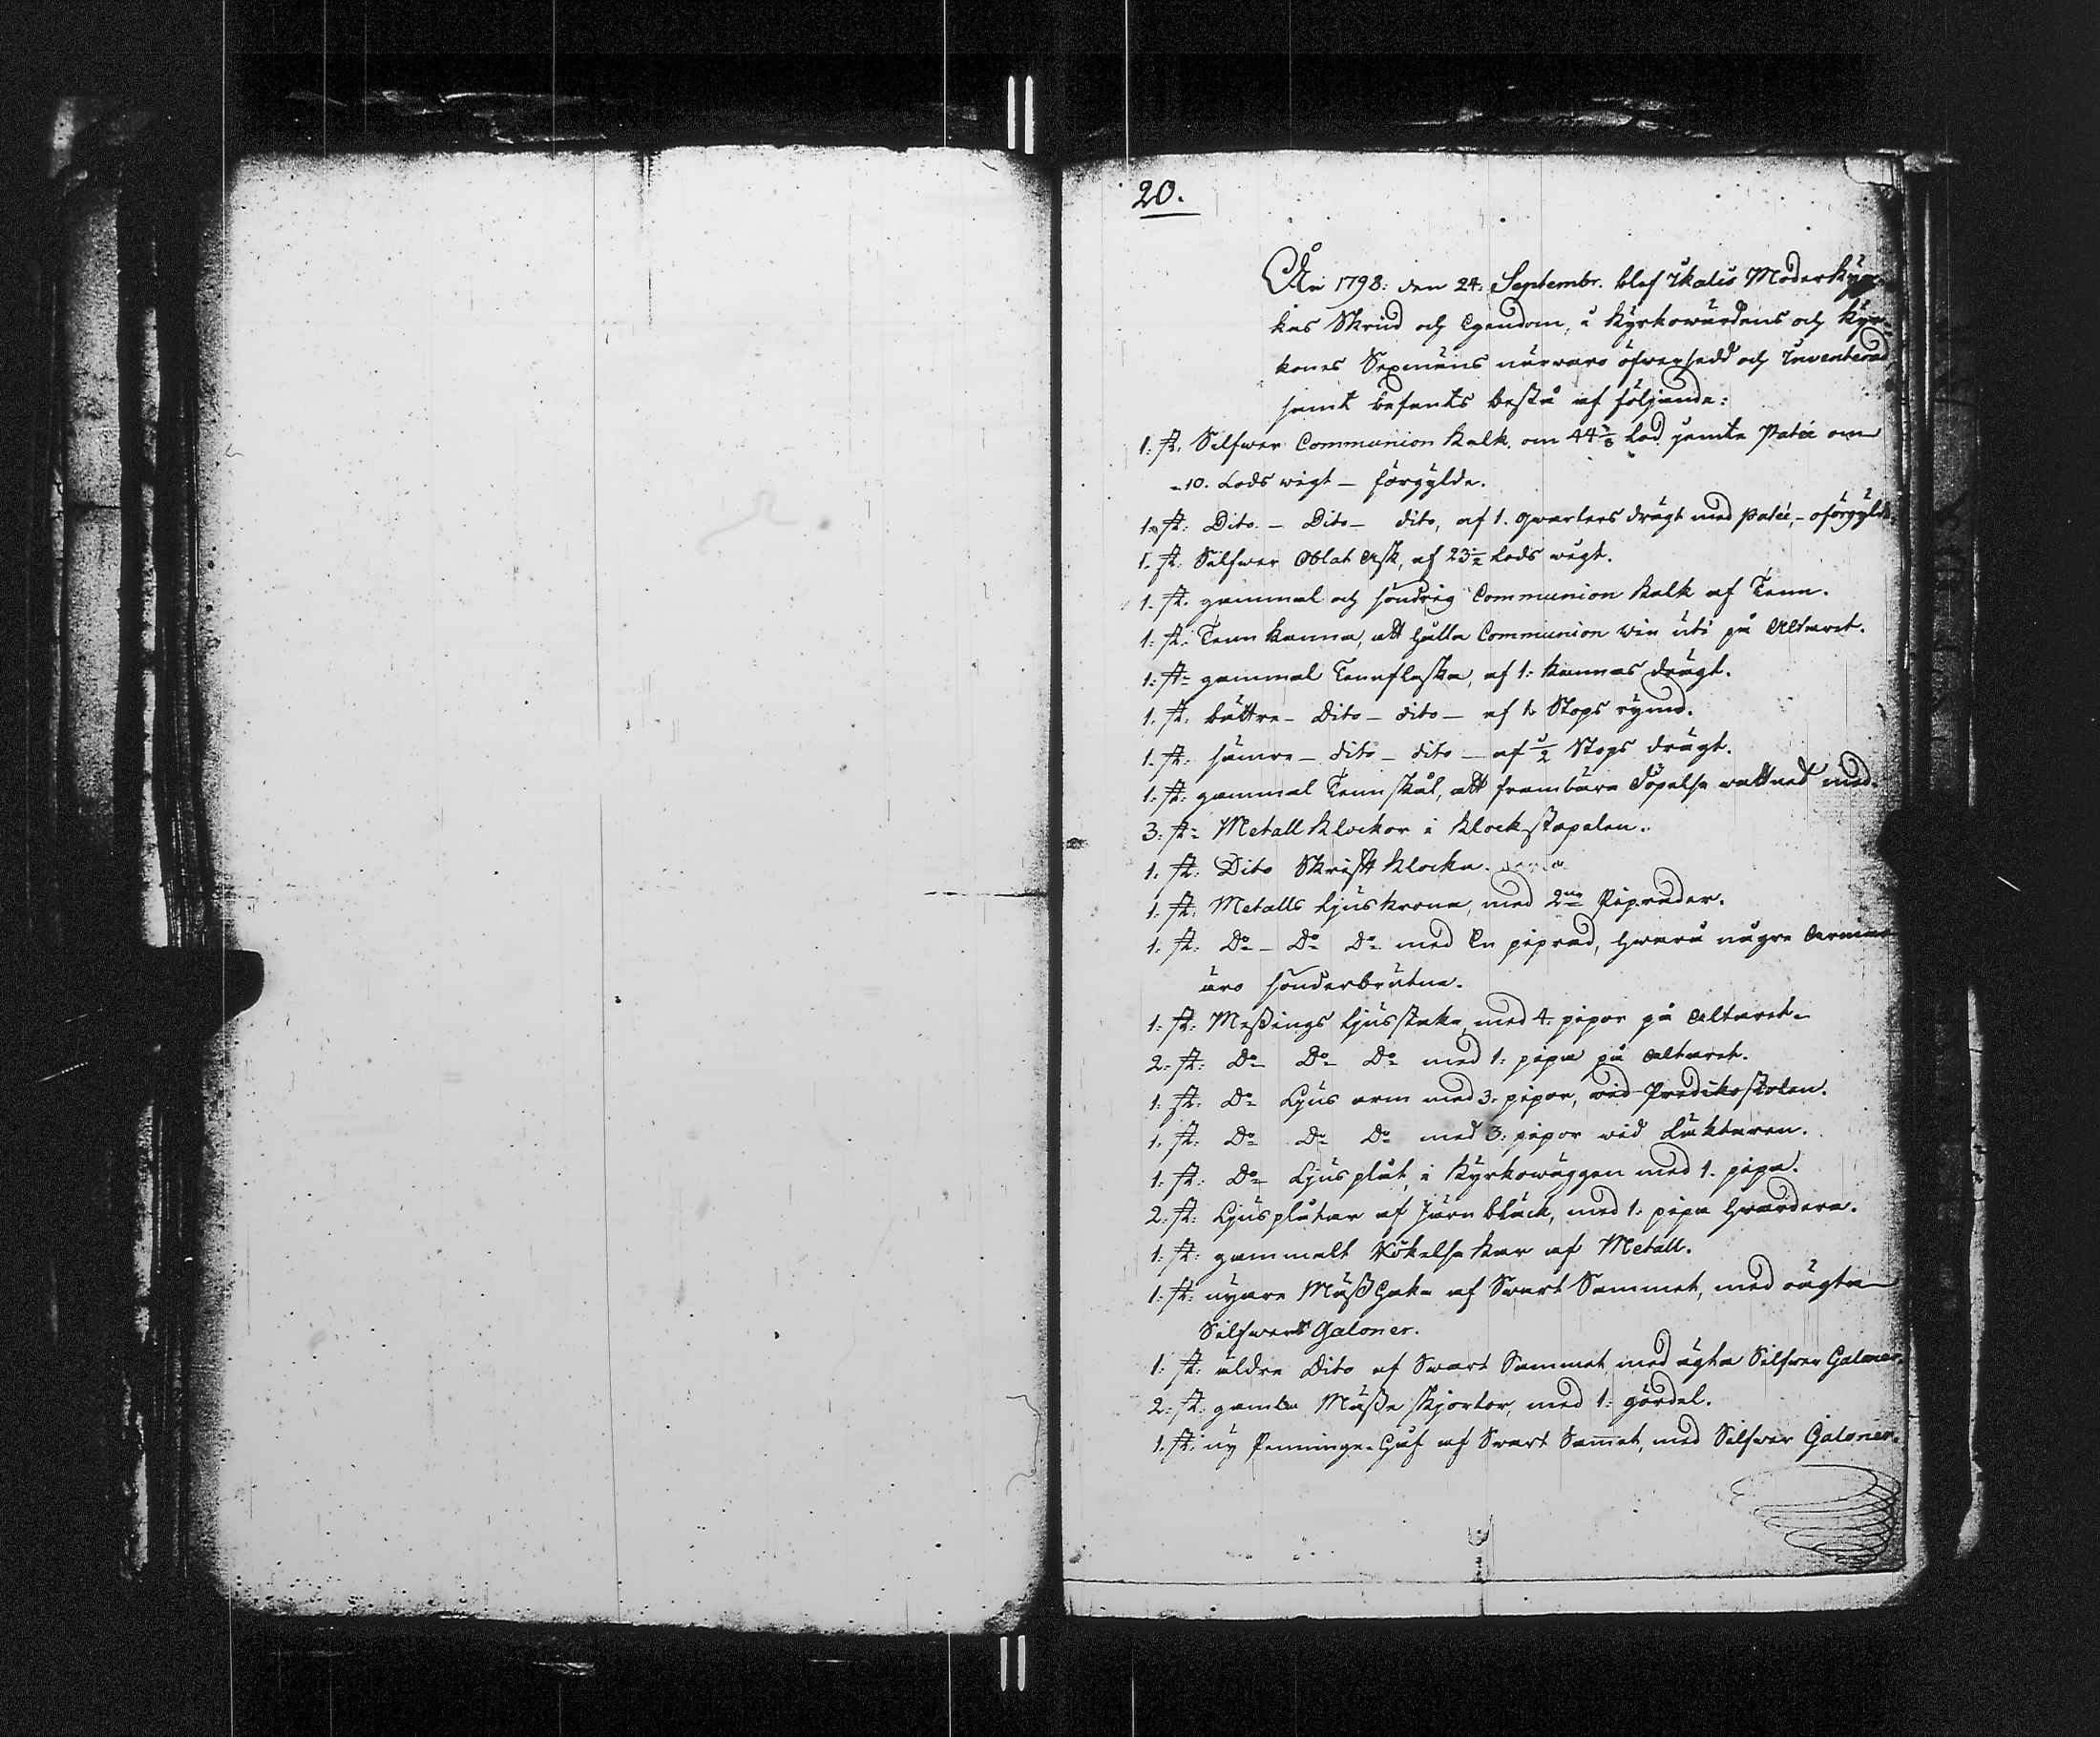 20.
År 1798: den 24: Septembr. blef Ikalis Moderkÿr-
kas Skrud och Egendom, i Kÿrkowärdens och Kÿr-
kones Sexmäns närwaro öfwersedd och Inventerad
samt befants bestå af följande:
1: st. Silfwer Communion Kalk om 44 5/8 Lod jemte Paté om
10. Lods wigt – förgÿlde.
1: st: Dito – Dito – dito, af 1. qwarters drägt med paté, – oförgÿld.
1. st: Silfwer Oblat Ask, af 23 1/2 Lods wigt.
1. st. gammal och söndrig Communion Kalk af Tenn.
1: st: Tenn Kanna, att hålla Communion Win uti på Altaret.
1: st: gammal Tennflaska, af 1: Kannas drägt.
1. st: bättre – Dito – dito – af 1. Stops rÿmd.
1. st: sämre – dito – dito – af 1/2 Stops drägt.
1: st: gammal Tenn skål, att frambära Döpelse wattnet med.
3: st: Metall Klockor i Klockstapelen.
1. st: Dito Skrift Klocka.
1: st: Metalls Ljus Krona, med 2ne Piprader.
1. st: Do – Do Do med En piprad, hwara någre Armar
äro sönderbrutne.
1: st: Meßings Ljusstake med 4: pipor på Altaret.
2: st: Do Do Do med 1: pipa på Altaret.
1: st: Do Ljus arm med 3: pipor, wid Predikostolen.
1: st: Do Do Do med 3: pipor wid Läktaren.
1: st: Do Ljusplåt, i Kÿrkowäggen med 1. pipa.
2: st: Ljusplåtar af Järn bläck, med 1: pipa hwardera.
1: st: gammalt Rökelse Kar af Metall.
1: st: nÿare Mäß Hake af Swart Sammet, med oägta
Silfwer Galoner.
1: st: äldre Dito af Swart Sammet med ägta Silfwer Galoner.
2: st: gamla Mäße skjortor, med 1: gördel.
1. st: nÿ Penninge-Håf af Swart Sam̅et, med Silfwer Galoner.